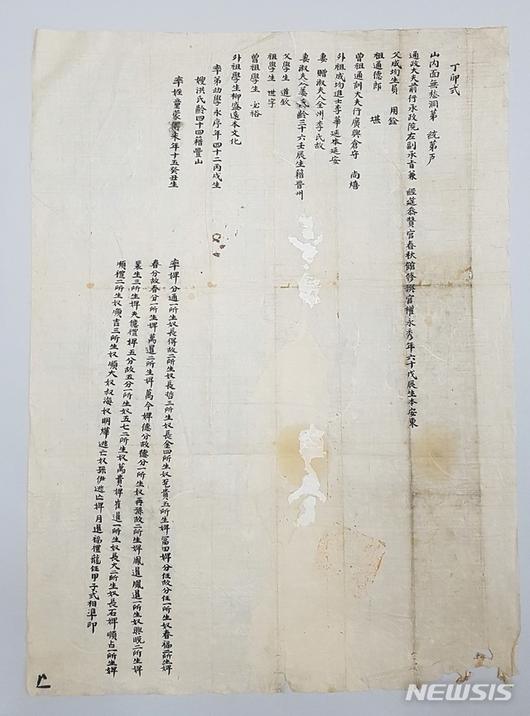 丁卯式
山內面無愁洞第 統第戶
通政大夫前行承政院左副承旨兼 經筵參贊官春秋館修撰官權永秀年六十戊辰生本安東
父成均生員 用銓
祖通德郎 堪
曾祖通訓大夫行廣興倉守 尚熺
外祖成均進士李華 本延安
妻 贈淑夫人全州李氏故
妻淑夫人姜氏齡三十六壬辰生籍晉州
父學生 道欽
祖學生 世宇
曾祖學生 必裕
外祖學生柳盛 本文化
率弟幼學永序年四十二丙戌生
嫂洪氏齡四十四籍豊山
率姪童蒙 年十五癸丑生
率婢分通一所生奴長得故二所生奴長哲三所生奴長金四所生奴 貴五所生婢富田婢分任故分任一所生奴春福二所生婢
春分故春分一所生婢萬還二所生婢萬今婢億分故億分一所生奴再孫故二所生婢鳳還鳳還一所生奴興 二所生婢
生三所生婢 億禮婢五分故五分一所生奴五七二所生奴萬貴婢崔還一所生奴長大二所生奴長石婢順占一所生婢
順禮二所生奴順吉三所生奴順大奴 海奴明 逃亡奴孫伊逃亡婢月還福禮龍任甲子式相準印
NEWSIS